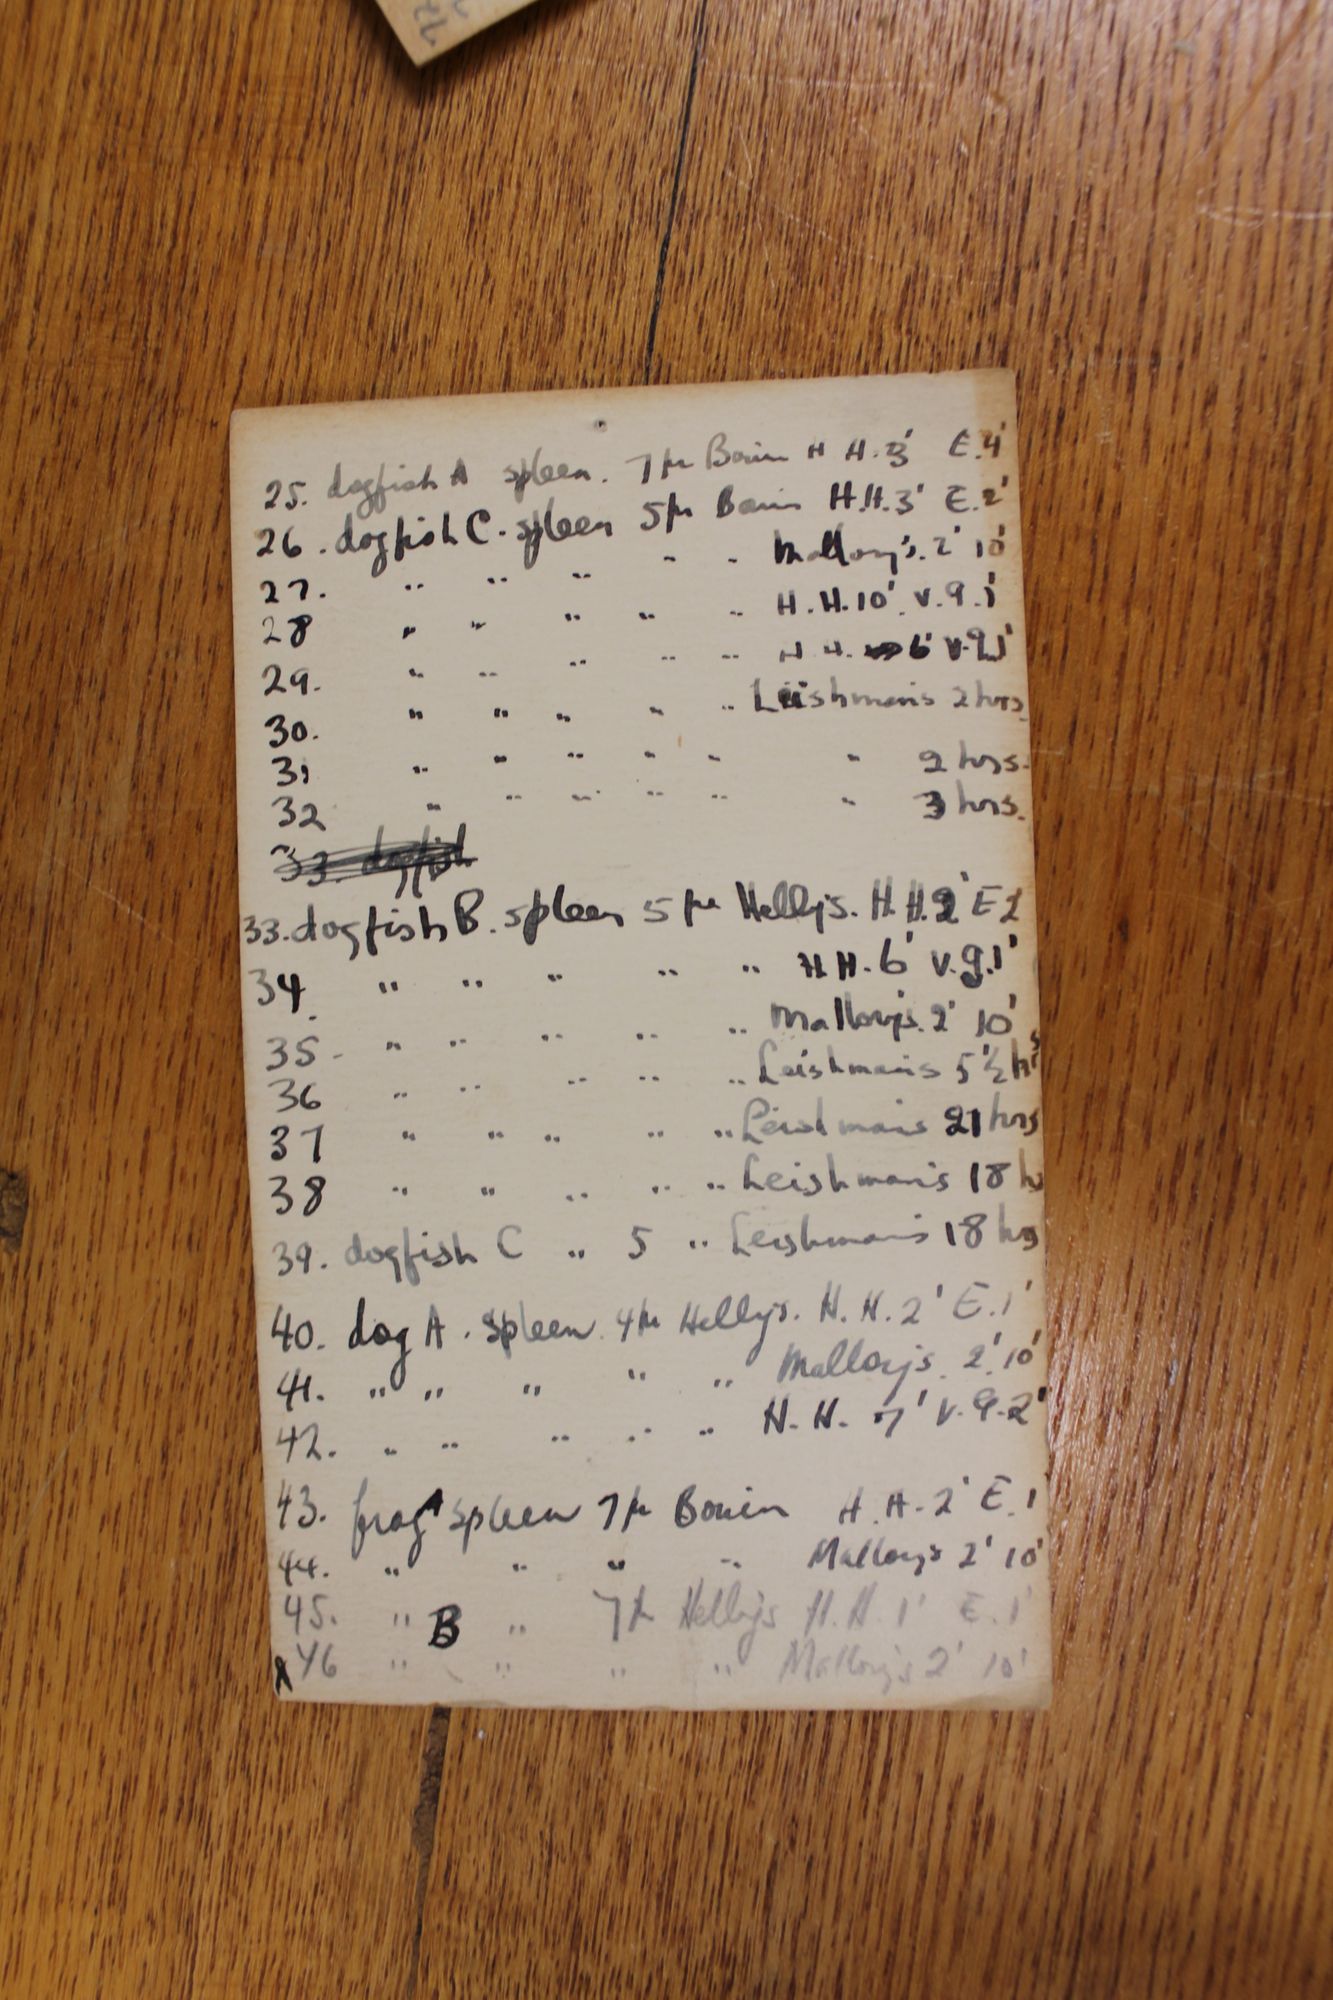 25. dogfish A spleen. 7 μ Bouin H H. 3' E. 4'
26. dogfish C. spleen 5μ Bouin H.H. 3' E. 2'
27. " " " " " Mallory's. 2' 10'
28 " " " " " H.H. 10'. V.G. 1'
29. " " " " " H.H. 6' V.G. 1'
30. " " " " " Leishman's 2 hrs.
31 " " " " " " 2 hrs.
32 " " " " " " 3 hrs.
33. dogfish
33. dogfish B. spleen 5 μ Helly's. H.H. 2' E
34. " " " " " H.H. 6' V.G. 1'
35. " " " " " Mallory's. 2' 10'
36 " " " " " Leishman's 5 1/2 hrs
37 " " " " " Leishman's 21 hrs
38 " " " " " Leishman's 18 hs
39. dogfish C " 5 " Leishman's 18 hrs
40. dog A. spleen 4μ Helly's. H.H. 2' E. 1'
41. " " " " " Mallory's. 2' 10'
42. " " " " " H.H. 7' V.G. 2'
43. frog A spleen 7μ Bouin H.H. 2' E. 1
44. " " " " Mallory's 2' 10'
45. " B " 7μ Helly's H.H. 1' E. 1'
46 " " " " Mallory's 2' 10'